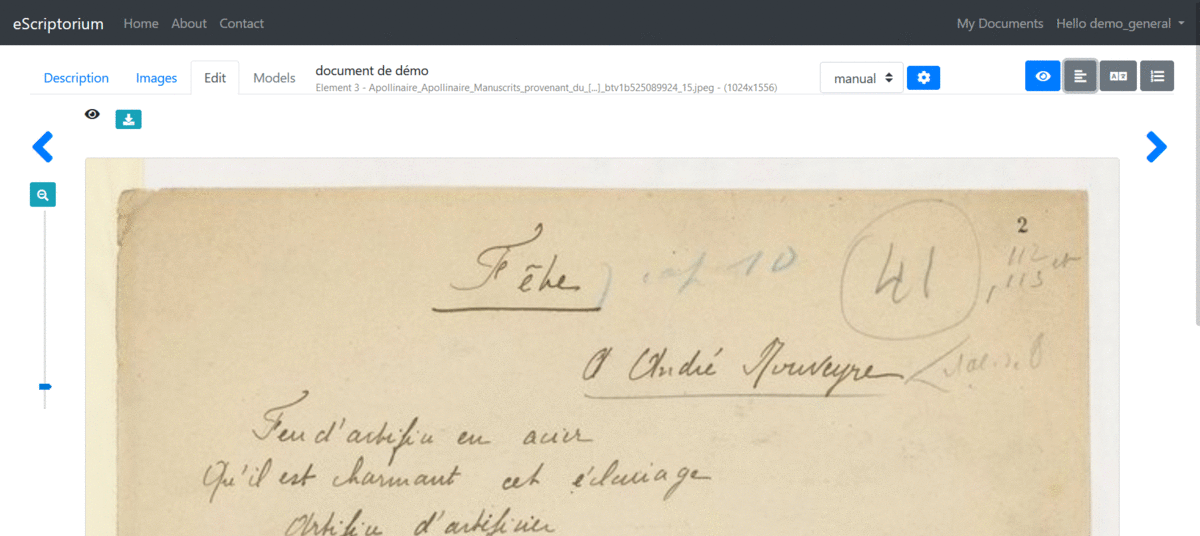 eScriptorium Home About Contact My Documents Hello demo_general
Description Images Edit Models document de démo manual
Element 3 - Apollinaire_Apollinaire_Manuscrits_provenant_du_[...]_btv1b525089924_15.jpeg - (1024x1556)
2
Fête 10 41 112 et
113
A André Rouveyre
Feu d'artifice en acier
Qu'il est charmant cet éclairage
Artifice d'artificier